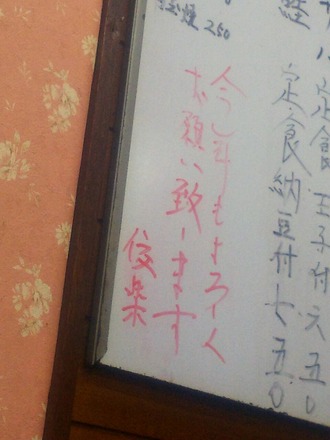 定食玉子付六五〇
定食納豆付七五〇
今年もよろしく
お願い致します
俊楽
250